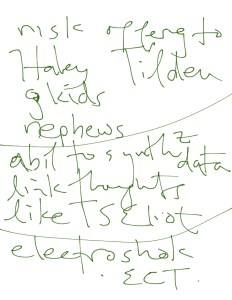 risk offering to
Haley Tilden
gkids
nephews
abil to synthz data
link thoughts
like TS Eliot
electroshok
. ECT .